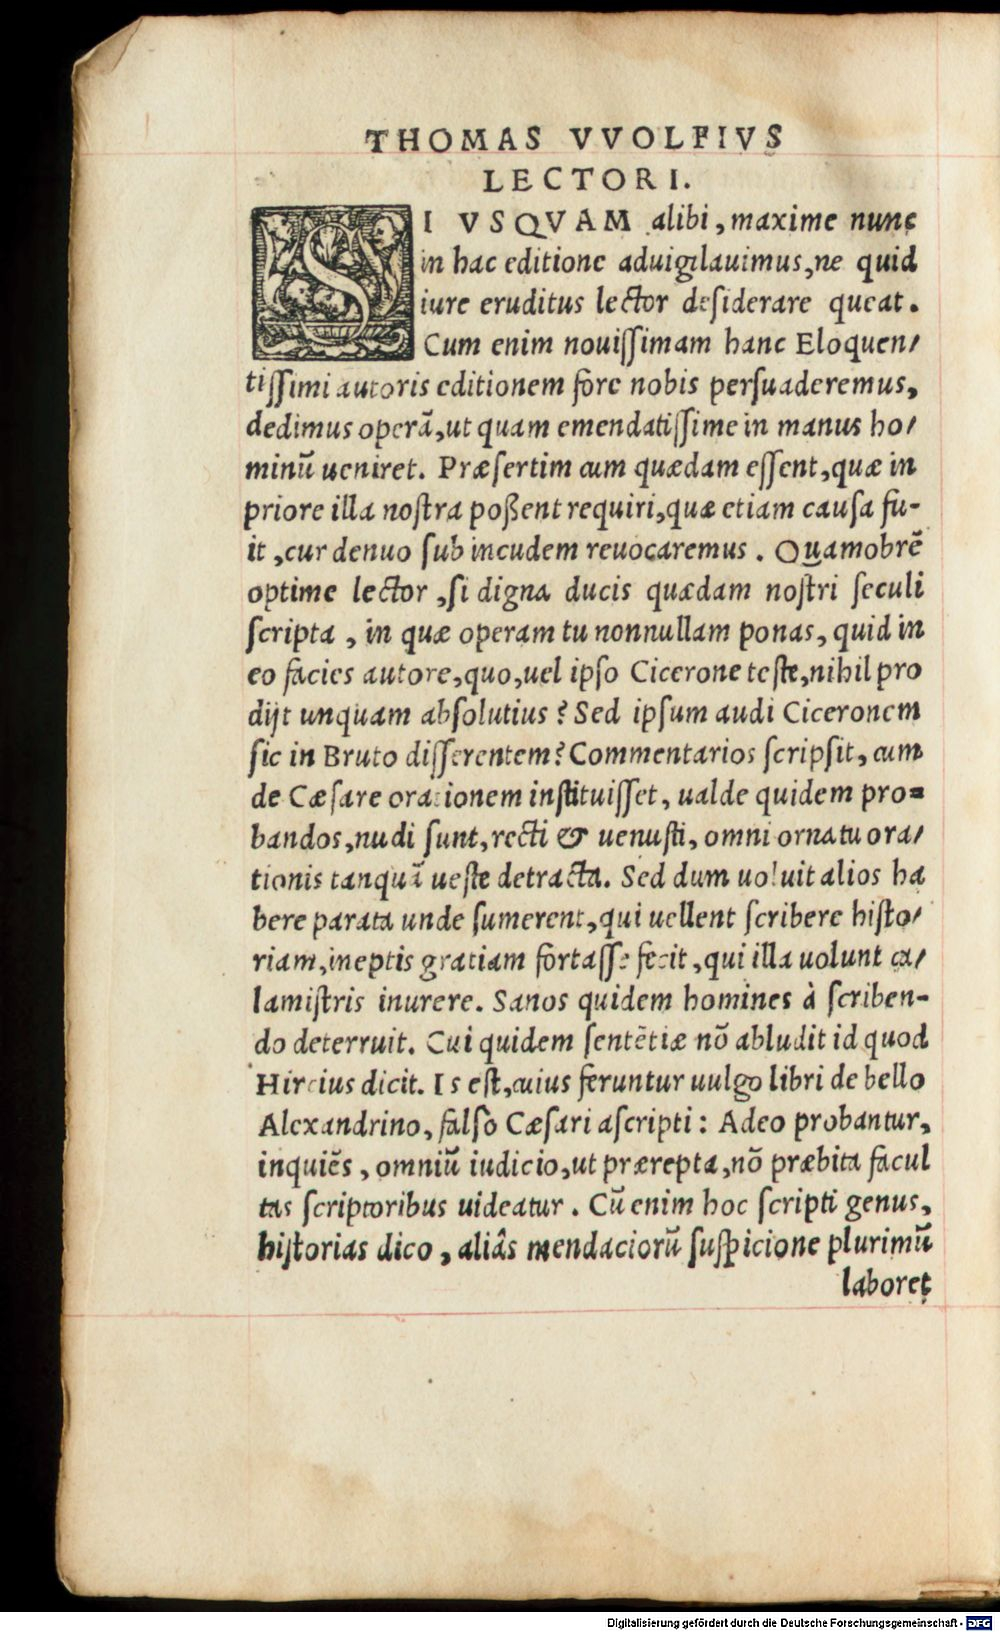 THOMAS VVOLFIVS
LECTORI.
SI VSQVAM alibi, maxime nunc
in hac editione aduigilauimus, ne quid
iure eruditus lector desiderare queat.
Cum enim nouissimam hanc Eloquen/
tissimi autoris editionem fore nobis persuaderemus,
dedimus operā, ut quam emendatissime in manus ho/
minū ueniret. Præsertim cum quædam essent, quæ in
priore illa nostra poßent requiri, quæ etiam causa fu-
it, cur denuo sub incudem reuocaremus. Quamobrē
optime lector, si digna ducis quædam nostri seculi
scripta, in quæ operam tu nonnullam ponas, quid in
eo facies autore, quo, uel ipso Cicerone teste, nihil pro
dijt unquam absolutius? Sed ipsum audi Ciceronem
sic in Bruto disserentem? Commentarios scripsit, cum
de Cæsare orationem instituisset, ualde quidem pro=
bandos, nudi sunt, recti & uenusti, omni ornatu ora/
tionis tanquā ueste detracta. Sed dum uoluit alios ha
bere parata unde sumerent, qui uellent scribere histo/
riam, ineptis gratiam fortasse fecit, qui illa uolunt ca/
lamistris inurere. Sanos quidem homines à scriben-
do deterruit. Cui quidem sentētiæ nō abludit id quod
Hircius dicit. Is est, cuius feruntur uulgo libri de bello
Alexandrino, falso Cæsari ascripti: Adeo probantur,
inquiēs, omniū iudicio, ut prærepta, nō præbita facul
tas scriptoribus uideatur. Cū enim hoc scripti genus,
historias dico, aliâs mendaciorū suspicione plurimū
laboret
Digitalisierung gefördert durch die Deutsche Forschungsgemeinschaft - DFG